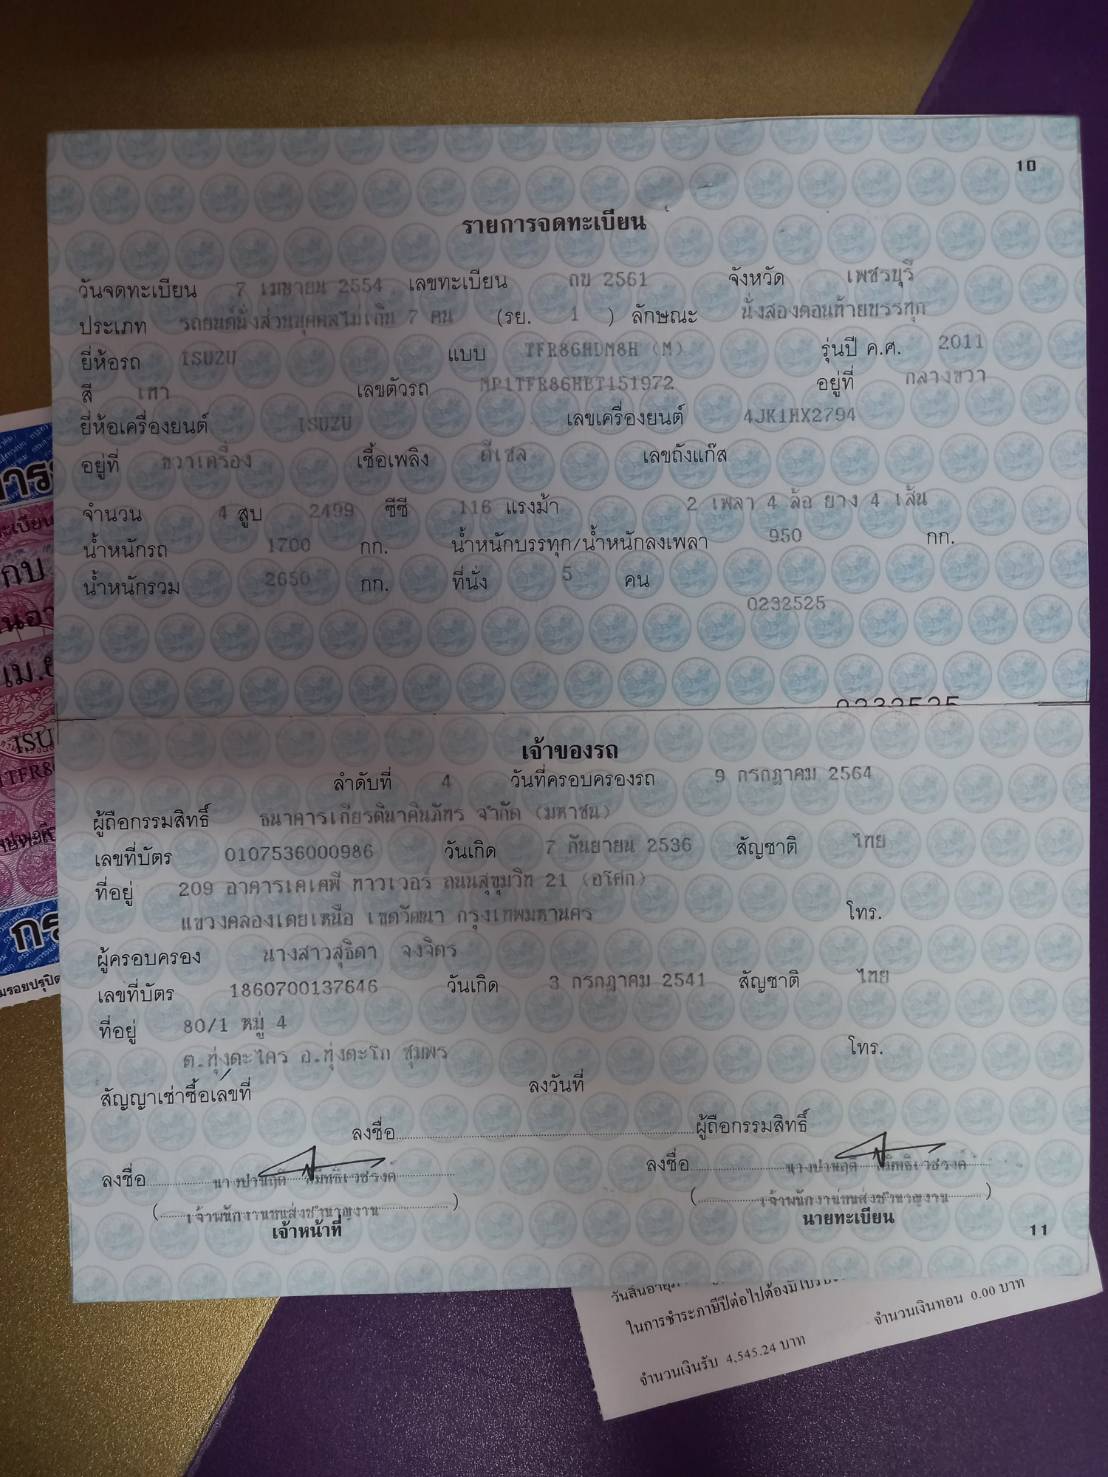 10
รายการจดทะเบียน
วันจดทะเบียน 7 เมษายน 2554 เลขทะเบียน กบ 2561 จังหวัด เพชรบุรี
ประเภท รถยนต์นั่งส่วนบุคคลไม่เกิน 7 คน (รย. 1 ) ลักษณะ นั่งสองตอนท้ายบรรทุก
ยี่ห้อรถ ISUZU แบบ TFR86HDM8H (M) รุ่นปี ค.ศ. 2011
สี เทา เลขตัวรถ MP1TFR86HBT151972 อยู่ที่ กลางขวา
ยี่ห้อเครื่องยนต์ ISUZU เลขเครื่องยนต์ 4JK1HX2794
อยู่ที่ ขวาเครื่อง เชื้อเพลิง ดีเซล เลขถังแก๊ส
จำนวน 4 สูบ 2499 ซีซี 116 แรงม้า 2 เพลา 4 ล้อ ยาง 4 เส้น
น้ำหนักรถ 1700 กก. น้ำหนักบรรทุก/น้ำหนักลงเพลา 950 กก.
น้ำหนักรวม 2650 กก. ที่นั่ง 5 คน
0232525
0232525
เจ้าของรถ
ลำดับที่ 4 วันที่ครอบครองรถ 9 กรกฎาคม 2564
ผู้ถือกรรมสิทธิ์ ธนาคารเกียรตินาคินภัทร จำกัด (มหาชน)
เลขที่บัตร 0107536000986 วันเกิด 7 กันยายน 2536 สัญชาติ ไทย
ที่อยู่ 209 อาคารเคเคพี ทาวเวอร์ ถนนสุขุมวิท 21 (อโศก)
แขวงคลองเตยเหนือ เขตวัฒนา กรุงเทพมหานคร โทร.
ผู้ครอบครอง นางสาวสุธิดา จงจิตร
เลขที่บัตร 1860700137646 วันเกิด 3 กรกฎาคม 2541 สัญชาติ ไทย
ที่อยู่ 80/1 หมู่ 4
ต.ทุ่งตะไคร อ.ทุ่งตะโก ชุมพร โทร.
สัญญาเช่าซื้อเลขที่ ลงวันที่
ลงชื่อ ผู้ถือกรรมสิทธิ์
ลงชื่อ ลงชื่อ
(เจ้าพนักงานขนส่งชำนาญงาน) (เจ้าพนักงานขนส่งชำนาญงาน)
เจ้าหน้าที่ นายทะเบียน
11
ในการชำระภาษีปีต่อไปต้องมี
จำนวนเงินรับ 4,545.24 บาท จำนวนเงินทอน 0.00 บาท
กบ
ISU